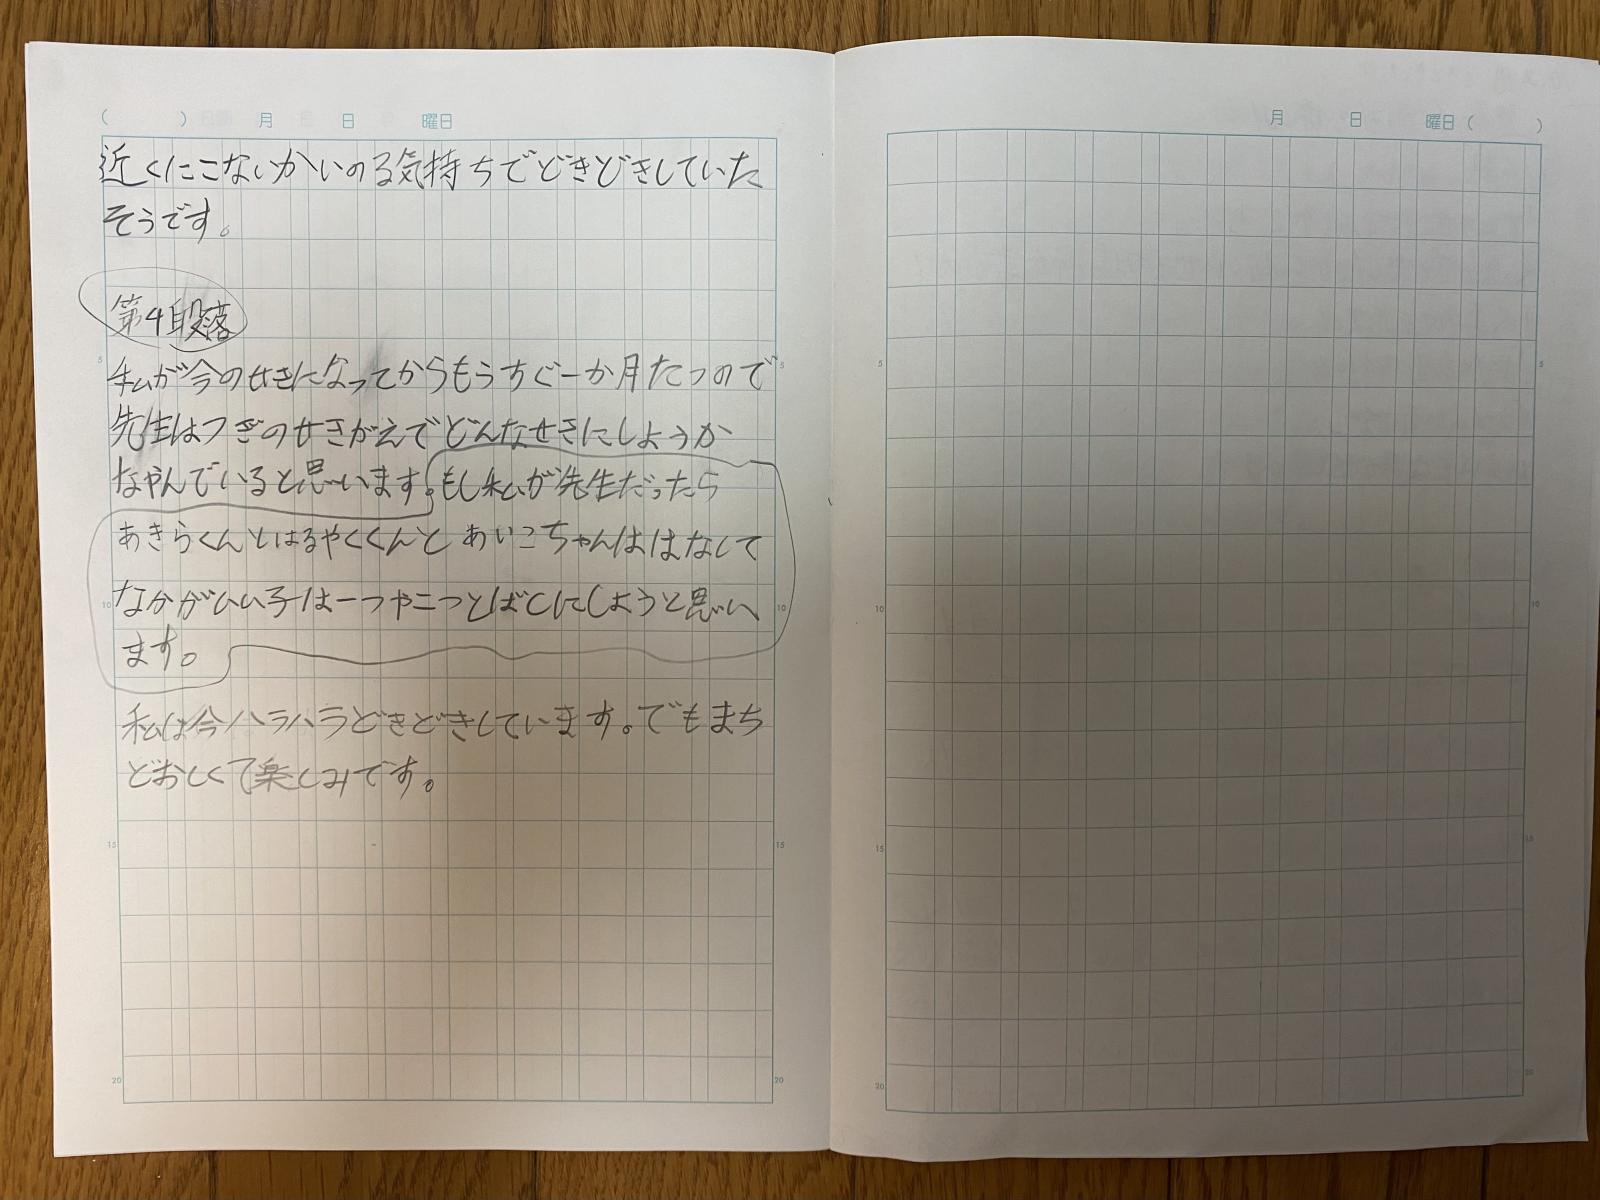 ( ) 月 日 曜日
近くにこないかいのる気持ちでどきどきしていた
そうです。
第4段落
私が今のせきになってからもうすぐ一か月たつので
先生はつぎのせきがえでどんなせきにしようか
なやんでいると思います。もし私が先生だったら
あきらくんとはるやくくんと あいこちゃんははなして
なかがいい子は一つや二つとばしにしようと思い
ます。
私は今ハラハラどきどきしています。でもまち
どおしくて楽しみです。
5
10
15
20
5
10
15
20
月 日 曜日 ( )
5
10
15
20
5
10
15
20